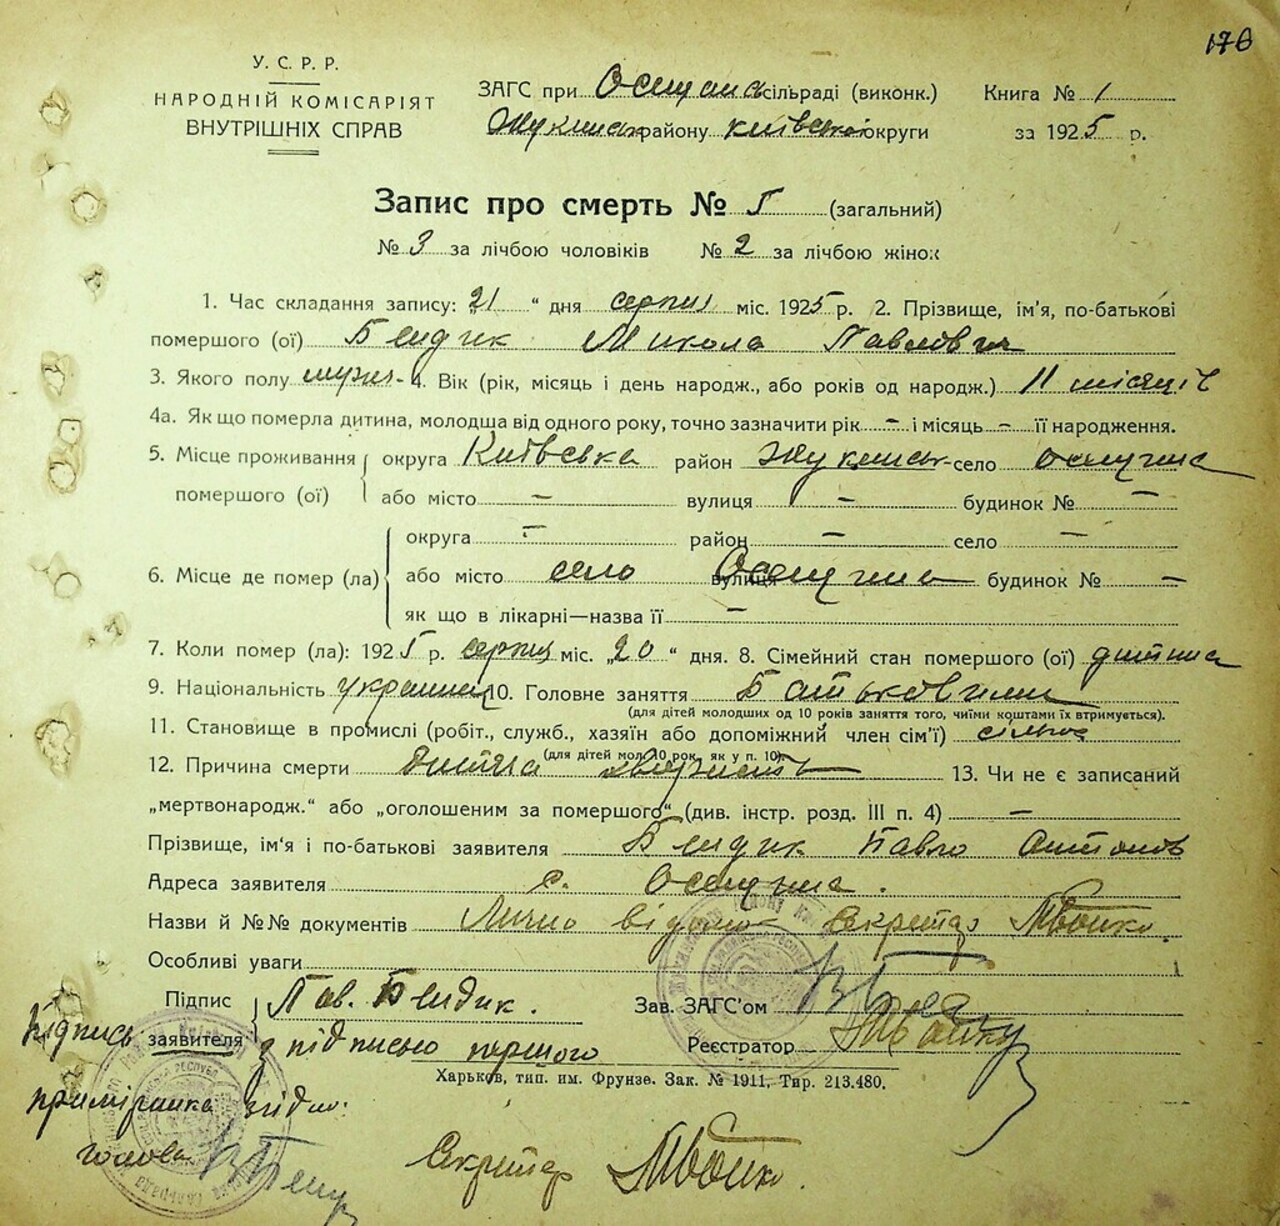 176
У. С. Р. Р.
НАРОДНІЙ КОМІСАРІЯТ
ВНУТРІШНІХ СПРАВ
ЗАГС при сільраді (виконк.)
району Київської округи
Книга № 1
за 1925 р.
Запис про смерть № 5 (загальний)
№ 3 за лічбою чоловіків № 2 за лічбою жінок
1. Час складання запису: „21 “ дня серпня міс. 1925 р. 2. Прізвище, ім'я, по-батькові
помершого (ої) Бендик Микола Павлович
3. Якого полу мужч- 4. Вік (рік, місяць і день народж., або років од народж.) 11 місяців
4а. Як що померла дитина, молодша від одного року, точно зазначити рік – і місяць – її народження.
5. Місце проживання округа Київська район село
помершого (ої) або місто – вулиця – будинок № –
округа – район – село –
6. Місце де помер (ла) або місто село вулиця будинок № –
як що в лікарні—назва її –
7. Коли помер (ла): 1925 р. серпня міс. „20 “ дня. 8. Сімейний стан помершого (ої) дитина
9. Національність 10. Головне заняття
(для дітей молодших од 10 років заняття того, чиїми коштами їх втримується).
11. Становище в промислі (робіт., служб., хазяїн або допоміжний член сім'ї)
(для дітей мол. 10 рок. як у п. 10).
12. Причина смерти 13. Чи не є записаний
„мертвонародж.“ або „оголошеним за помершого“ (див. інстр. розд. III п. 4) –
Прізвище, ім'я і по-батькові заявителя Бендик Павло Антонов
Адреса заявителя с.
Назви й №№ документів Лично відомо Секретар МБойко
Особливі уваги
Підпис Пав. Бендик. Зав. ЗАГС'ом
заявителя з підписью першого Реєстратор МБойко
Харьков, тип. им. Фрунзе. Зак. № 1911, Тир. 213.480.
Підпись
примірника згідно:
голова
Секретар МБойко.